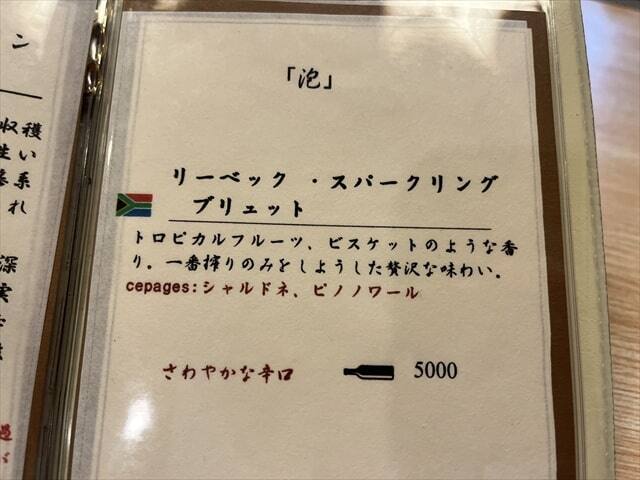 「泡」
リーベック ・スパークリング
ブリュット
トロピカルフルーツ、ビスケットのような香
り。一番搾りのみをしようした贅沢な味わい。
cepages:シャルドネ、ピノノワール
さわやかな辛口 5000
ン
収穫
い
系
れ
深
実